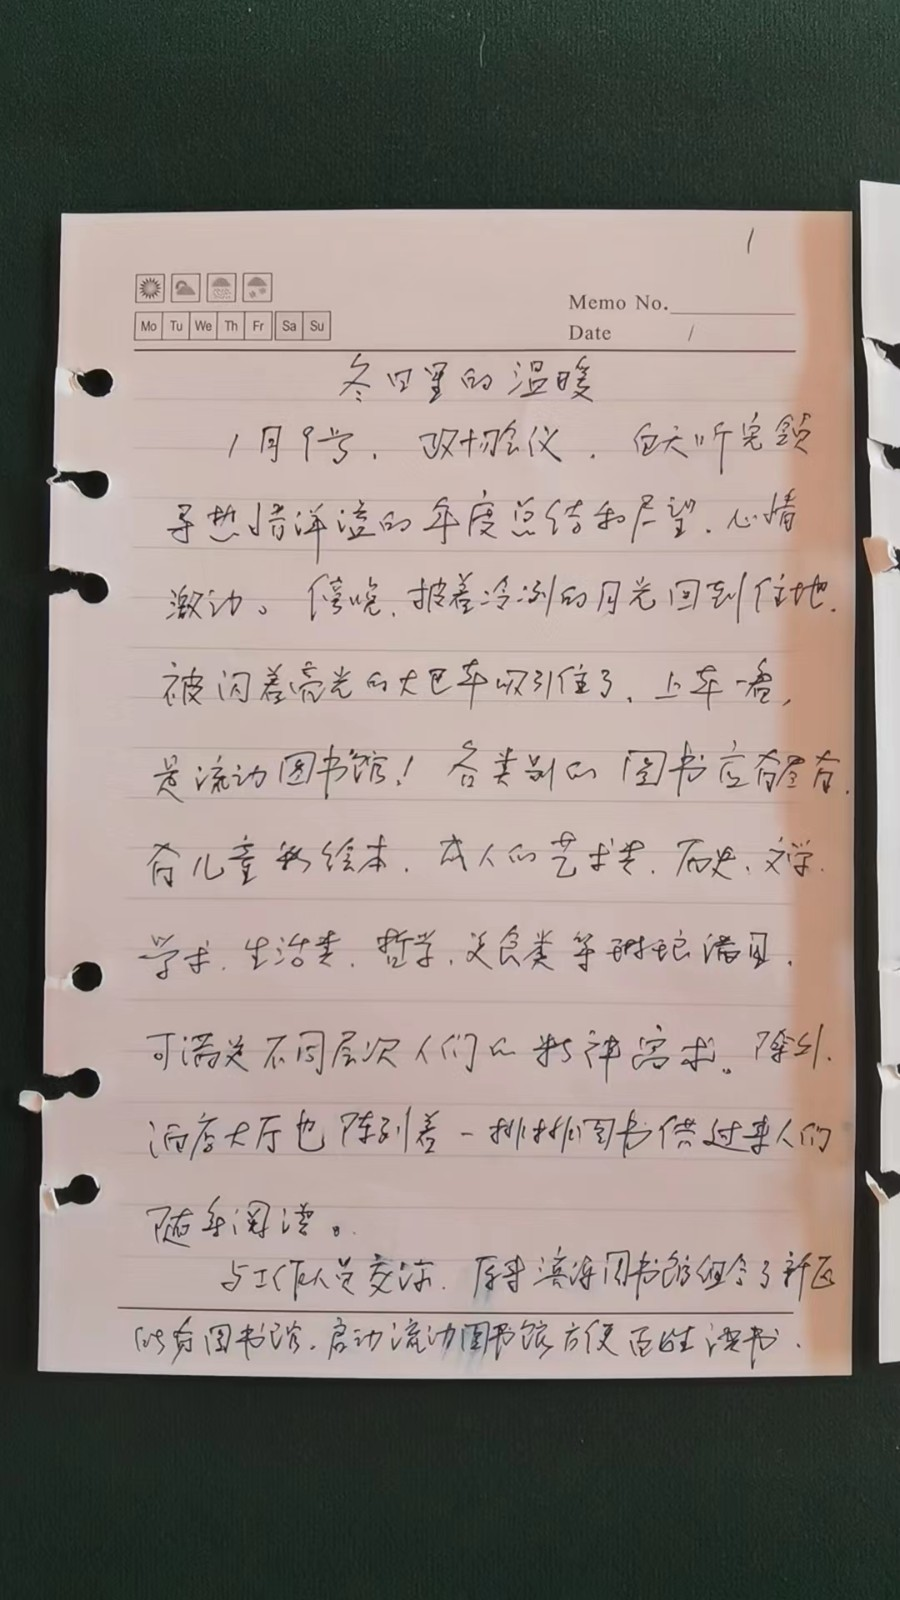 1
Memo No.
Date /
Mo Tu We Th Fr Sa Su
冬日里的温暖
1月9号，会议，白天听完领
导热情洋溢的年度总结和展望，心情
激动。傍晚，披着冷冽的月光回到住地，
被闪着亮光的大巴车吸引住了，上车一看，
是流动图书馆！各类别的图书应有尽有，
有儿童的绘本，成人的艺术类，历史，文学，
学术，生活类，哲学，美食类等琳琅满目，
可满足不同层次人们的精神需求。除外，
酒店大厅也陈列着一排排图书供过来人们
随手阅读。
与工作人员交流，原来滨海图书馆组合了新区
所有图书馆，启动流动图书馆方便百姓读书，